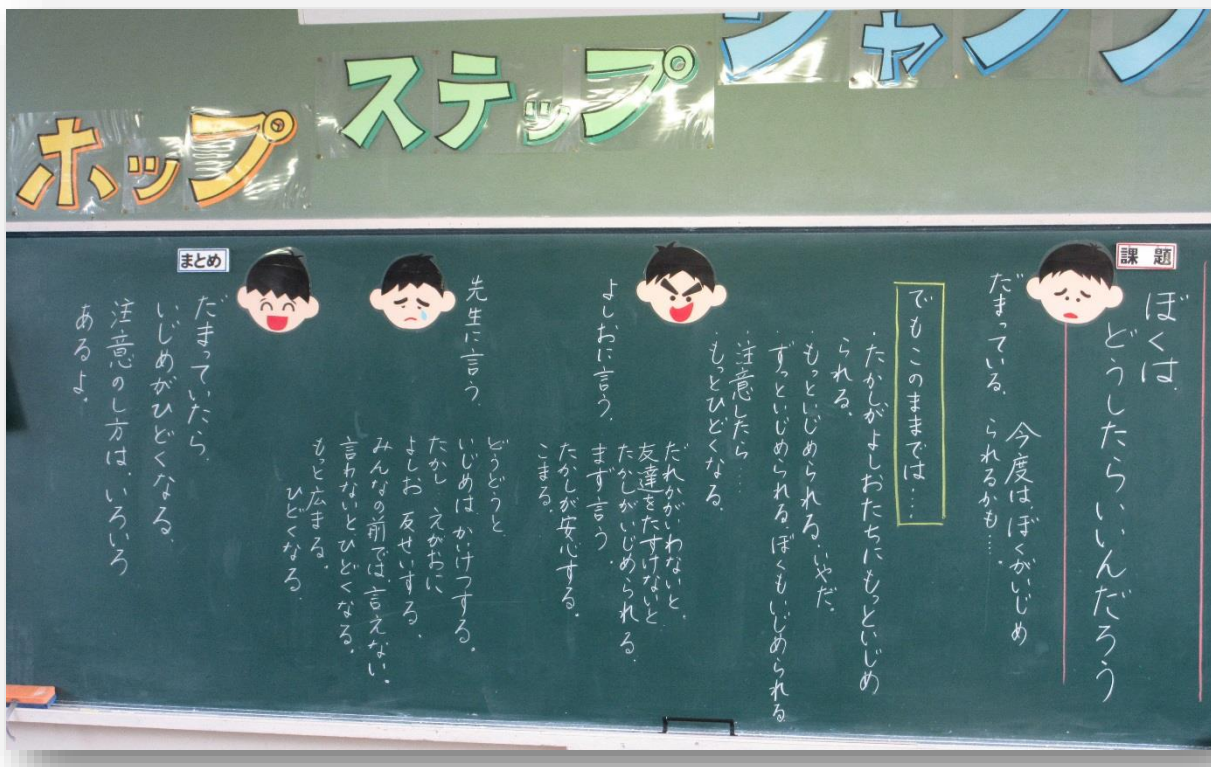 ホップ
ステップ
ジャンプ
課題
ぼくは、
どうしたらいいんだろう
だまっている。
今度は、ぼくがいじめ
られるかも…。
でもこのままでは…
・たかしがよしおたちにもっといじめ
られる。
・もっといじめられる。いやだ。
・ずっといじめられる。ぼくもいじめられる
・注意したら…
もっとひどくなる。
よしおに言う。
だれかがいわないと、
友達をたすけないと
たかしがいじめられる。
まず言う
たかしが安心する。
こまる。
先生に言う。
どうどうと
いじめは、かいけつする。
たかし…えがおに
よしお 反せいする。
みんなの前では、言えない。
言わないとひどくなる。
もっと広まる。
ひどくなる
まとめ
だまっていたら、
いじめがひどくなる。
注意のし方は、いろいろ
あるよ。